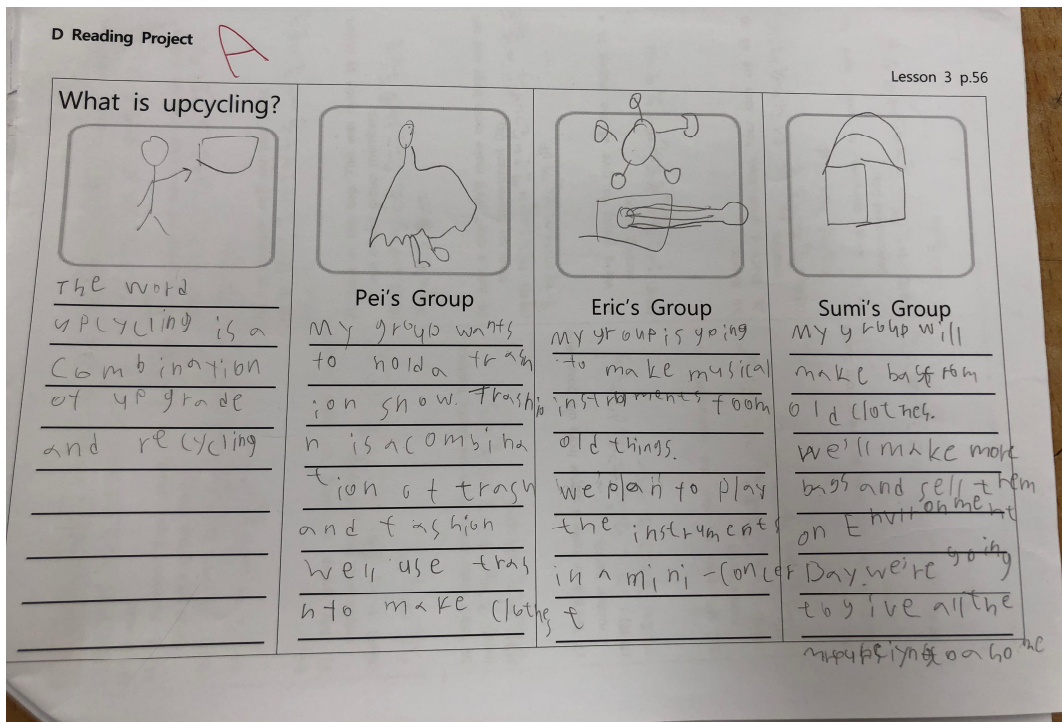 D Reading Project
A
Lesson 3 p.56
What is upcycling?
The word
upcycling is a
combination
of upgrade
and recycling
Pei's Group
My group wants
to hold a trash
ion show. Trashio
n is a combina
tion of trash
and fashion
We'll use tras
h to make clothes
Eric's Group
My group is going
to make musical
instruments from
old things.
we plan to play
the instruments
in a mini-concer
t
Sumi's Group
My group will
make bag from
old clothes.
We'll make more
bags and sell them
on Environment
Day. we're going
to give all the
to a home